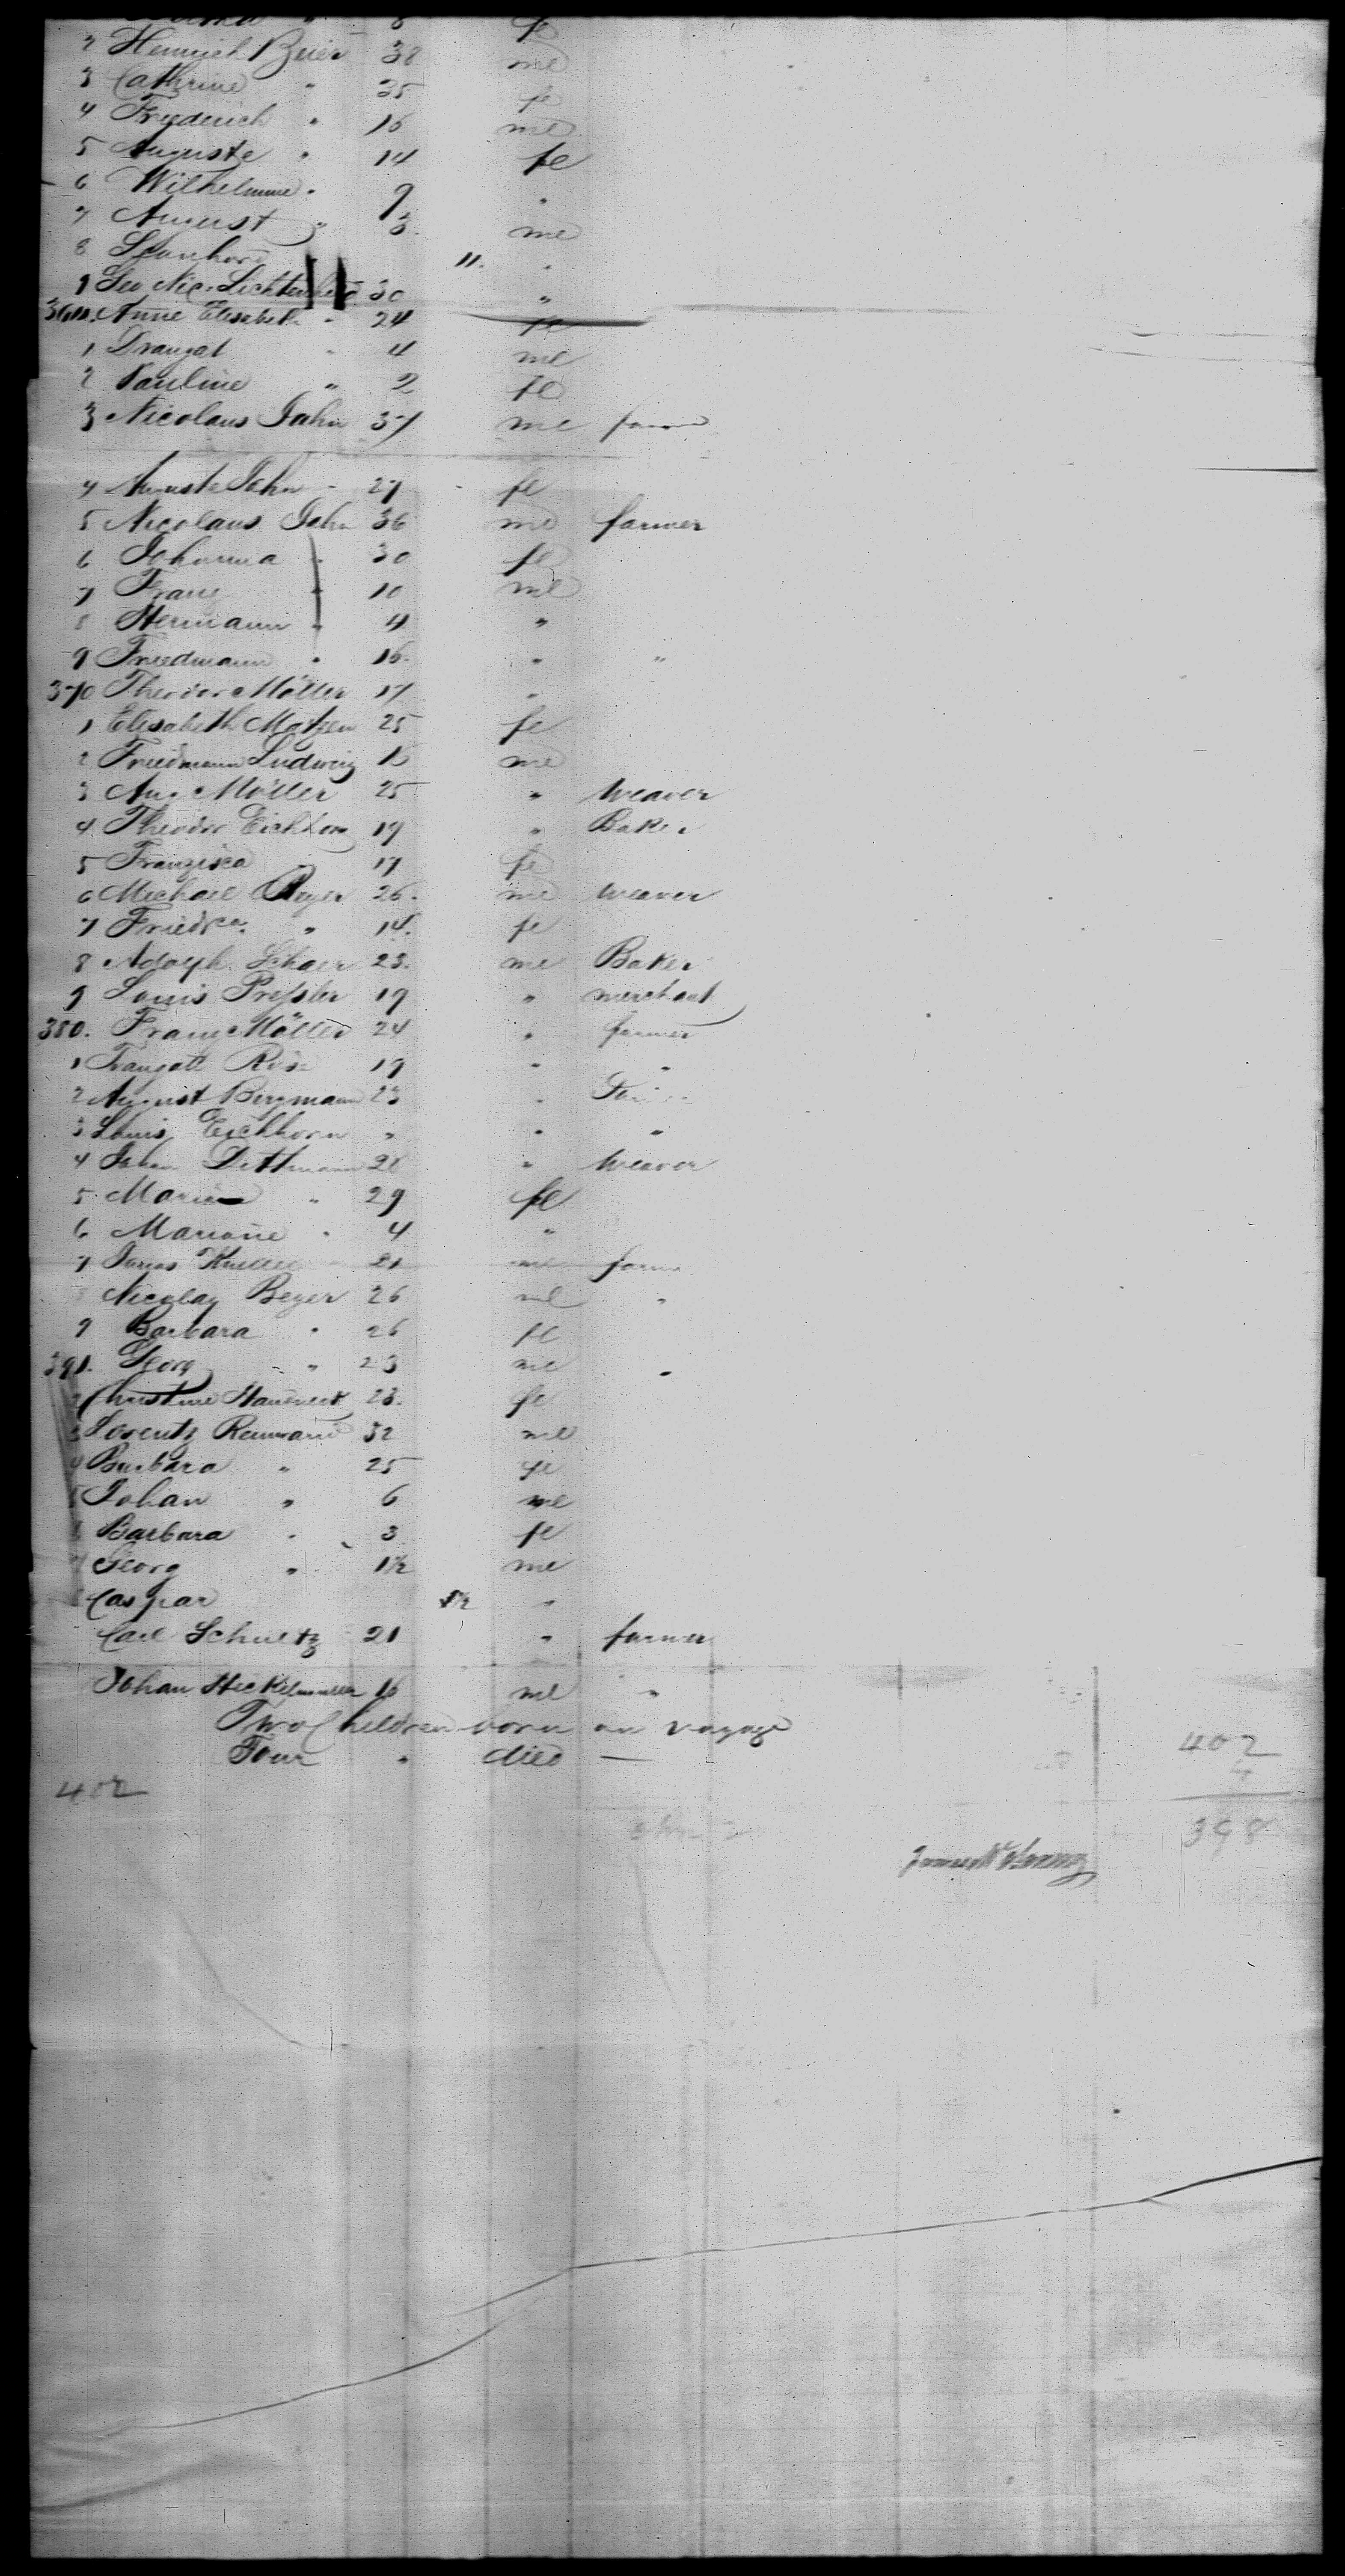 2 Heinrich Beier 38 me
3 Cathrine " 35 fe
4 Friederich " 16 me
5 Auguste " 14 fe
6 Wilhelmine " 9 "
7 August " 3 me
8 Leonhard 11. "
9 Geo Nic. 30 "
Anne Elisabeth " 24 fe
1 Draugat " 4 me
2 Pauline " 2 fe
3 Nicolaus Jahn 37 me
4 Auguste Jahn " 27 fe
5 Nicolaus Jahn 36 me farmer
6 Johanna " 30 fe
7 Franz " 10 me
8 Hermann " 4 "
9 Friedmann " 16 " "
370 Theodor Möller 17 "
1 Elisabeth Matzen 25 fe
2 Friedmann Ludwig me
3 Aug Möller 25 " weaver
4 Theodor Eichhorn 19 " Baker
5 Franzisca " 17 fe
6 Michael Beyer 26. me weaver
7 Friedrca. " 14. fe
8 Adolph. 23. me Baker
9 Louis Preßler 19 " merchant
380. Franz Möller 24 " farmer
1 Traugott Rose 19 " "
2 August Bergmann 23 "
3 Louis Eichhorn " " "
4 Dittmann 28 " weaver
5. Marie " 29 fe
6 Mariane " 4 "
7 21 me
8 Nicolay Beyer 26 me "
9 Barbara " 26 fe
391. Georg " 23 me "
2 Christine 23. fe
3 Lorentz 32 me
4 Barbara " 25 fe
5 Johan " 6 me
6 Barbara " 3 fe
7 Georg " 1½ me
8 Caspar "
Carl Schultz 21 " farmer
Johan 16 me "
Two Children born on voyage
Four " died —
402
4
402
398